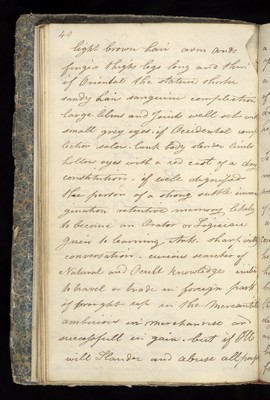 40
light brown hair arm ands
fingrs thighs legs long and thin
if Oriental the stature shorter
sandy hair sanguine complection
large limbs and joints well set with
small grey eyes if Occidental com
plection salow lank body slender limbs
hollow eyes with a red cast of a dry
constitution - if well dignified
the person of a strong subtle imma
gination retentive memory likely
to become an Orator or Logician
given to learning Arts. sharp witty
conversation - curious searcher of
Natural and Occult knowledge inclin
to travel or trade in foreign parts
if brought up in the Mercantile
ambicious in merchandise and
successfull in gain but if Ill
will Slander and abuse all